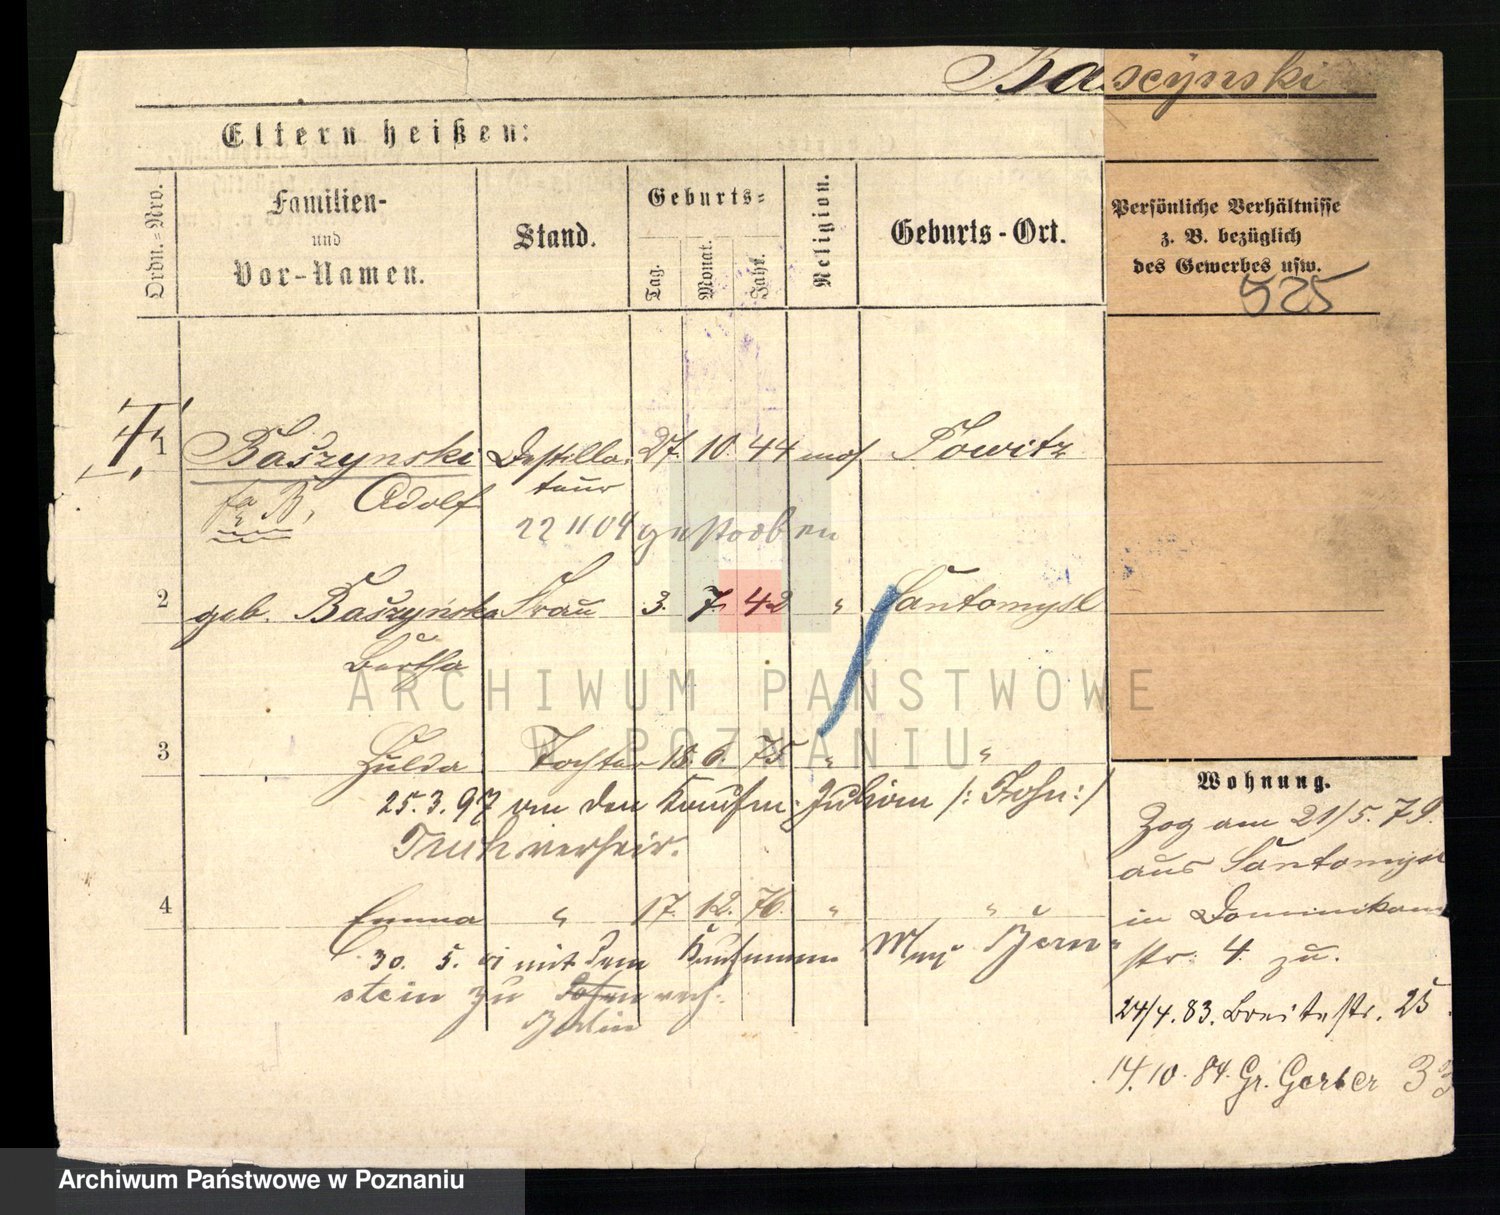 Baszynski
Eltern heißen:
Ordn.=Nro.
Familien-
und
Vor-Namen.
Stand.
Geburts=
Tag.
Monat.
Jahr.
Religion.
Geburts-Ort.
Persönliche Verhältnisse
z. B. bezüglich
des Gewerbes usw.
525
1 Baszynski Destilla- 27. 10. 44 mos
Adolf teur
22 11 04 gestorben
2 geb. Baszyńska Frau 3. 7. 42 " Santomysl
Bertha
3 Hulda Tochter 18. 6. 75 " "
25.3.97 an den Kaufm. Julian /: John :/
verheir.
4 Emma " 17. 12. 76. " "
30. 5. mit dem Kaufmann Max Bern-
stein zu Posen verh.
Berlin
Wohnung.
Zog am 21/5.79.
aus Santomysl
in Dominikaner
str. 4. zu.
24/4.83. Breitestr. 25
14.10.84. Gr. Gerber 33
ARCHIWUM PAŃSTWOWE
W POZNANIU
Archiwum Państwowe w Poznaniu